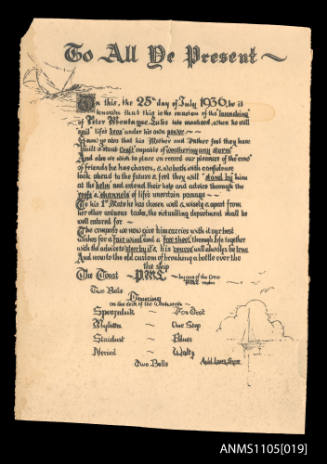 To All Ye Present
On this, the 25th day of July 1936, be it
known that this is the occasion of the 'launching'
of Peter Montague Luke into manhood, when he will
sail life's seas under his own power
Know ye also that his Mother and Father feel they have
built a stout Craft capable of weathering any storm
And also we wish to place on record our pleasure of the crew
of friends he has chosen, & we both with confidence
look ahead to the future & feel they will stand by him
at the helm and extend their help and advice through the
reefs & channels of life's uncertain passage
To his 1st Mate he has chosen well & wisely & apart from
her other arduous tasks, the victualling department shall
be well cared for
The compass we now give him carries with it our best
wishes for a fair wind and a free sheet through life together
with the advice to steer by it & his course will always be true
And now to the old custom of breaking a bottle over the
the ship
The Toast P.M.L. by one of the Crew
P.M.L. replies
Two Bells
Dancing
on the deck of the
Fox Trot
One Step
Stardust Blues
Waltz
Two Bells
Auld Lang Syne
ANMS1105[019]